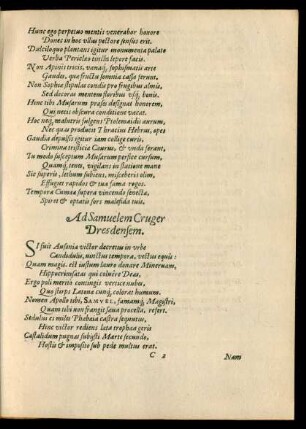 Hunc ego perpetuo mentis venerabor honore
Donec in hoc ullus pectore sensus erit.
Dulciloquo plantans igitur monumenta palato
Verba Pericleo tincta lepore facis.
Non Apinis tricis, vanaq́; sophismatis arte
Gaudes, quæ fructu somnia cassa ferunt.
Non Sophiæ stipulas condis pro frugibus almis,
Sed decoras mentem floribus usq́; bonis.
Hinc tibi Musarum præses designat honorem,
Qui metit obscura conditione vacat.
Hoc neq́; mahutis fulgens Ptolemaidis aurum,
Nec quas producit Thracius Hebrus, opes
Gaudia depulsis igitur iam collige curis,
Crimina tristiciæ Caurus, & unda ferant,
Tu modo susceptum Musarum perfice cursum,
Quamq́; tenes, vigilans in statione mane
Sic superis, lethum subiens, miscebere olim,
Effuget rapidos & tua fama rogos.
Tempora Cumæa supera vincendo senecta,
Spiret & optatis sors malefida tuis.
Ad Samuelem Cruger
Dresdensem.
SI fuit Ausonia victor decretus in urbe
Candidulis, vinctus tempora, vectus equis:
Quam magis est iustum lauro donare Minervam,
Hippocrinæas qui coluere Deas.
Ergo puli meritò coningit vertice nubis,
Quo stirps Latona cumq́; colorat humum.
Numen Apollo tibi, SAMUEL, famamq́; Magistri,
Quam tibi non frangit sæva procella, refert.
Sedulus es miles Phebaia castra sequutus,
Hinc victor rediens læta trophæa geris
Castalidum pugnas subiisti Marte secundo,
Hostis & impositio sub pede multus erat.
C 2
Nam